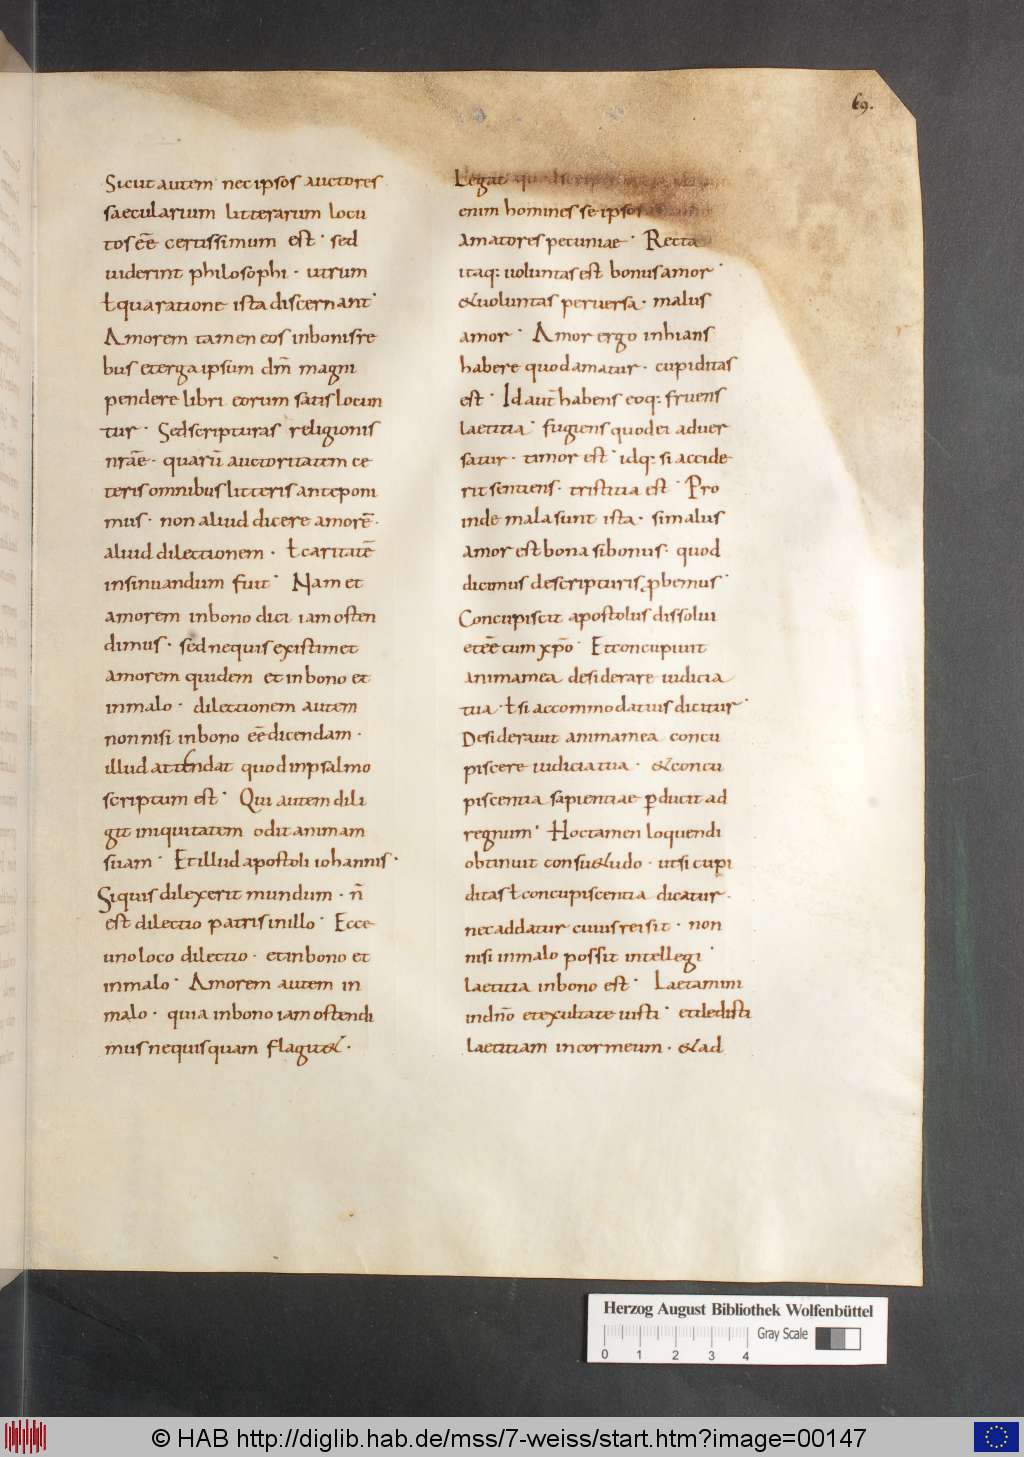 69.
Sicut autem nec ipsos auctores
saecularium litterarum locu
tos eē̄ certissimum est · sed
uiderint philosophi · utrum
ł qua ratione ista discernant ·
Amorem tamen eos in bonis re
bus et erga ipsum dm̄ magni
pendere libri eorum satis locun
tur · Sed scripturas religionis
nr̄ae · quarū auctoritatem ce
teris omnibus litteris anteponi
mus · non aliud dicere amorē ·
aliud dilectionem · ł caritatē
insinuandum fuit · Nam et
amorem in bono dici iam osten
dimus · sed nequis existimet
amorem quidem et in bono et
in malo · dilectionem autem
non nisi in bono eē dicendam ·
illud attendat quod in psalmo
scriptum est · Qui autem dili
git iniquitatem odit animam
suam · Et illud apostoli iohannis ·
Siquis dilexerit mundum · n̄
est dilectio patris in illo · Ecce
uno loco dilectio · et in bono et
in malo · Amorem autem in
malo · quia in bono iam ostendi
mus nequisquam flagitet ·
Legat quod scriptum
enim homines se ipsos
amatores pecuniae · Recta
itaq: uoluntas est bonus amor ·
& uoluntas peruersa · malus
amor · Amor ergo inhians
habere quod amatur · cupiditas
est · Id aut̄ habens eoq: fruens
laetitia · fugiens quod ei aduer
satur · timor est · idq: si accide
rit sentiens · tristitia est · Pro
inde mala sunt ista · si malus
amor est bona si bonus · quod
dicimus de scripturis ꝓbemus ·
Concupiscit apostolus dissolui
et eē cum xp̄o · Et concupiuit
anima mea desiderare iudicia
tua · ł si accommodatius dicitur ·
Desiderauit anima mea concu
piscere iudicia tua · & concu
piscentia sapientiae ꝑducit ad
regnum · Hoc tamen loquendi
obtinuit consu&udo · ut si cupi
ditas ł concupiscentia dicatur ·
nec addatur cuius rei sit · non
nisi in malo possit intellegi ·
laetitia in bono est · Laetamini
in dn̄o et exultate iusti · et dedisti
laetitiam in cor meum · & ad
Herzog August Bibliothek Wolfenbüttel
Gray Scale
0 1 2 3 4
© HAB http://diglib.hab.de/mss/7-weiss/start.htm?image=00147